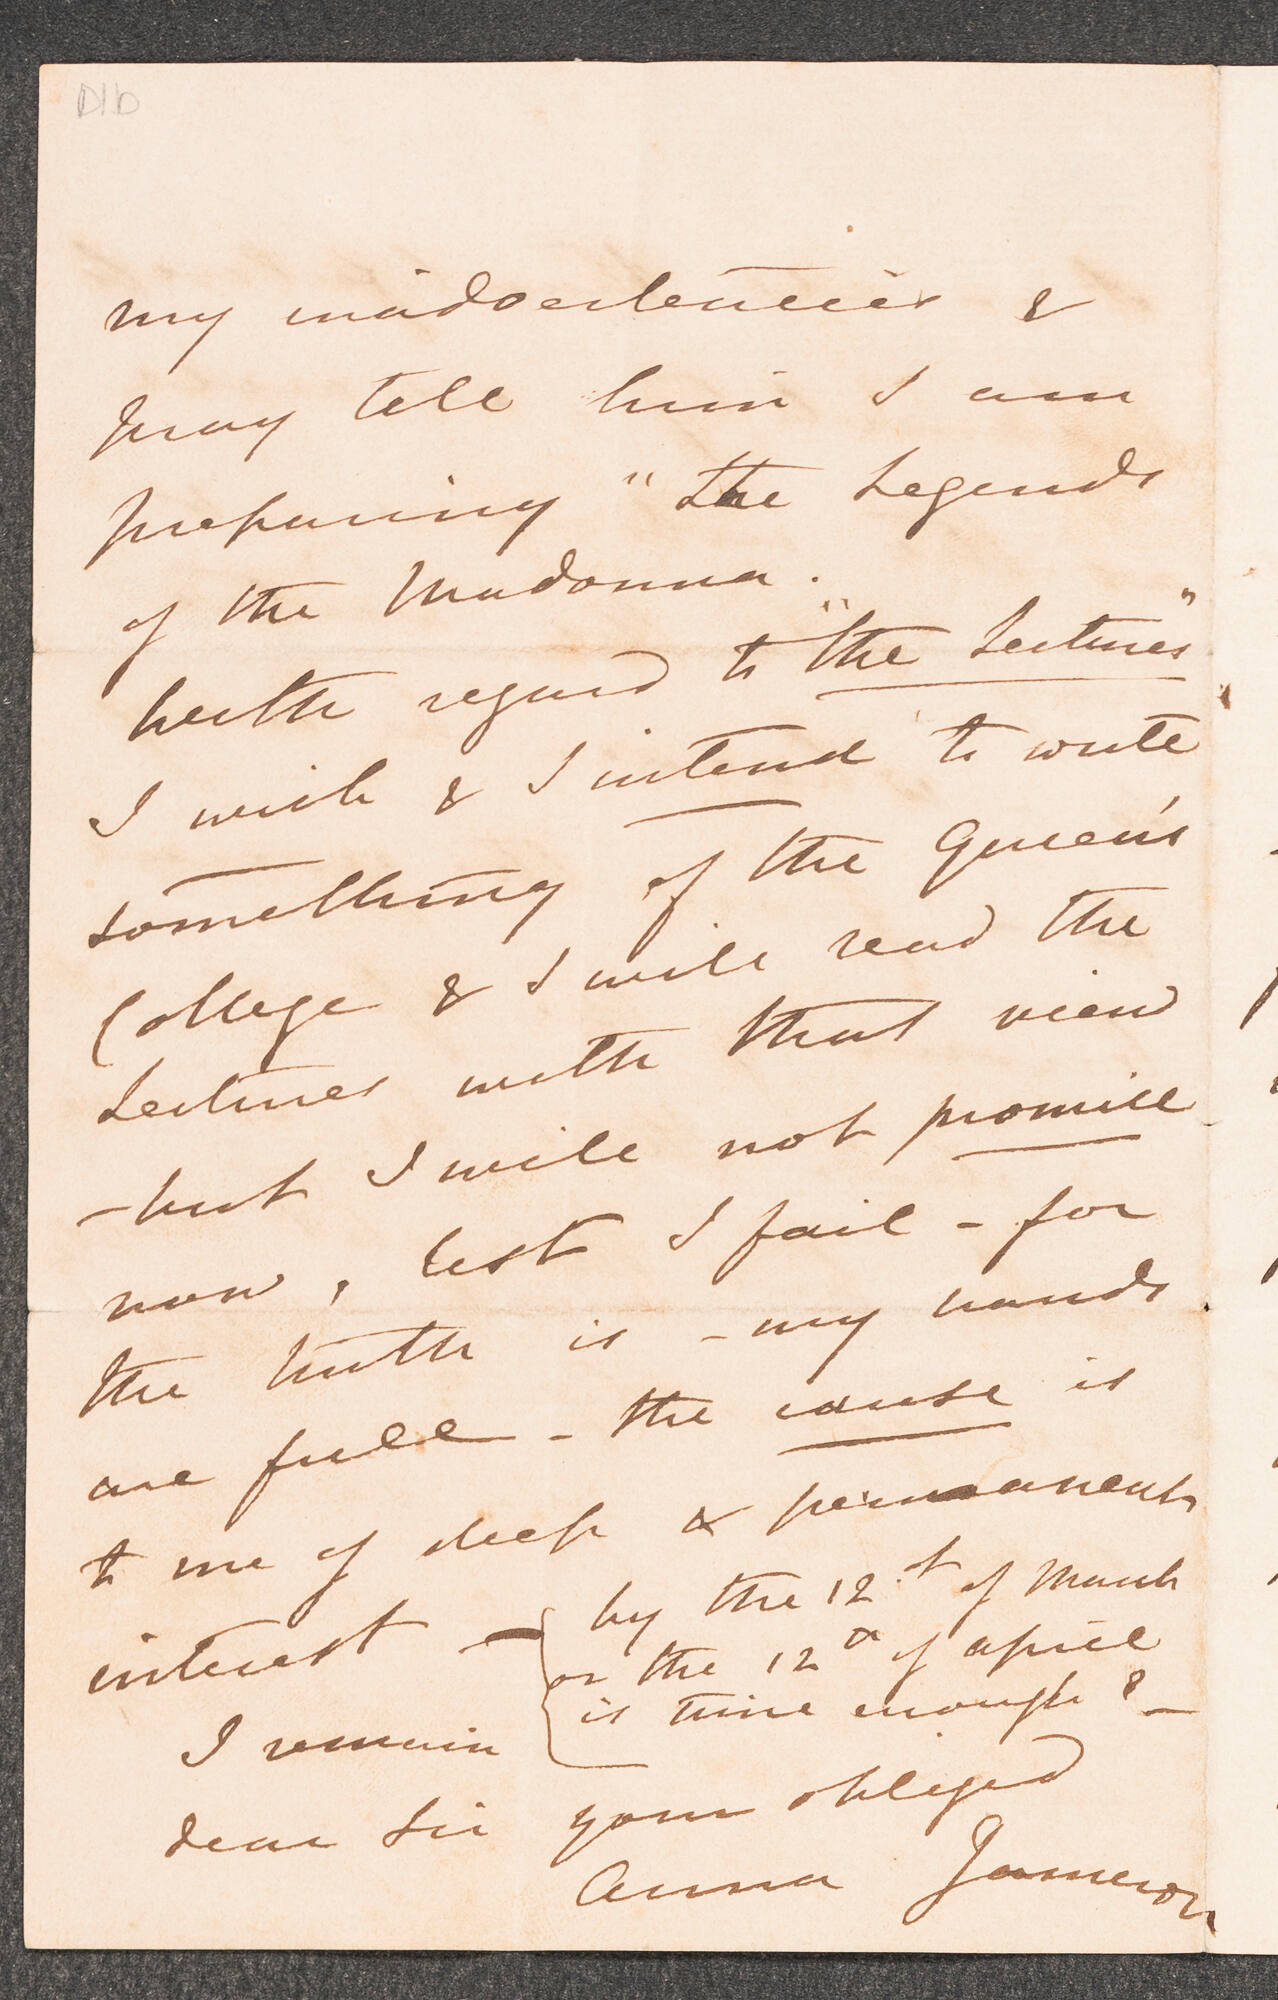 D1b
my inadvertencies &
pray tell him I am
preparing "the Legends
of the Madonna.
With regard to "the Lectures"
I wish & I intend to write
something of the Queen's
College & I will read the
Lectures with that view
- but I will not promise
now, lest I fail - for
the truth is - my hands
are full - the cause is
to me of deep & permanent
interest -
{ by the 12th of March
or the 12th of April
is time enough? -
I remain
dear Sir your obliged
Anna Jameson